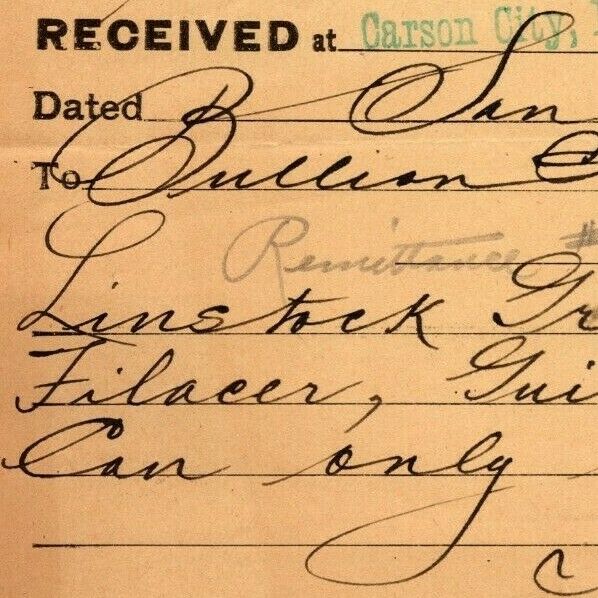 RECEIVED at Carson City,
Dated San
To Bullion
Remittance #
Linstock Gr
Filacer, Gui
Can only